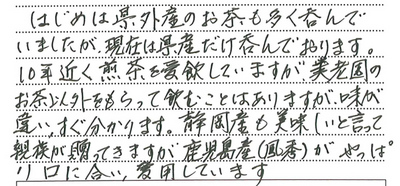 はじめは県外産のお茶も多く呑んで
いましたが、現在は県産だけ呑んでおります。
10年近く煎茶を愛飲していますが美老園の
お茶以外をもらって飲むことはありますが、味が
違い、すぐ分かります。静岡産も美味しいと言って
親族が贈ってきますが鹿児島産(鳳秀)がやっぱ
り口に合い、愛用しています